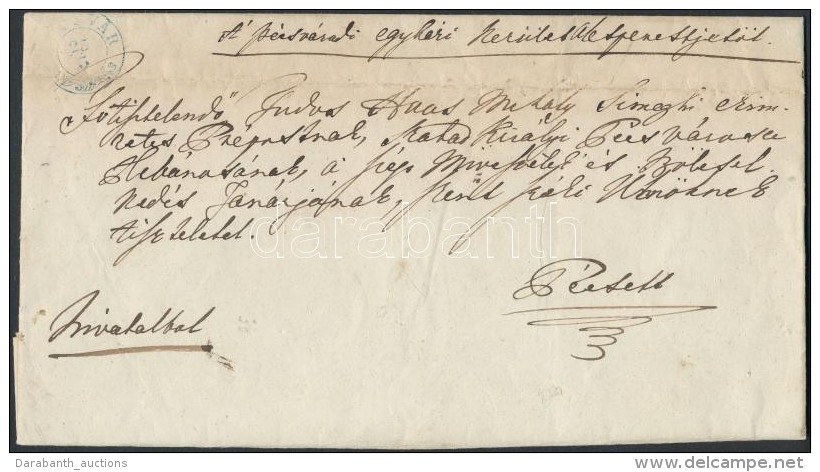 A Pécsváradi egyházi Kerület Alesperestjétől.
„Főtisztelendő" Tudós Haas Mihály Simeghi czím-
zetes Prépostnak, Szabad Királyi Pécs városa
Plébánosának, a szép Mivészetek és Bölcsel.
kedés Tanárjának, Szent széki Ülnöknek
tisztelettel.
Pécsett
hivatalbol
darabanth
Darabanth_auctions
delcampe.net